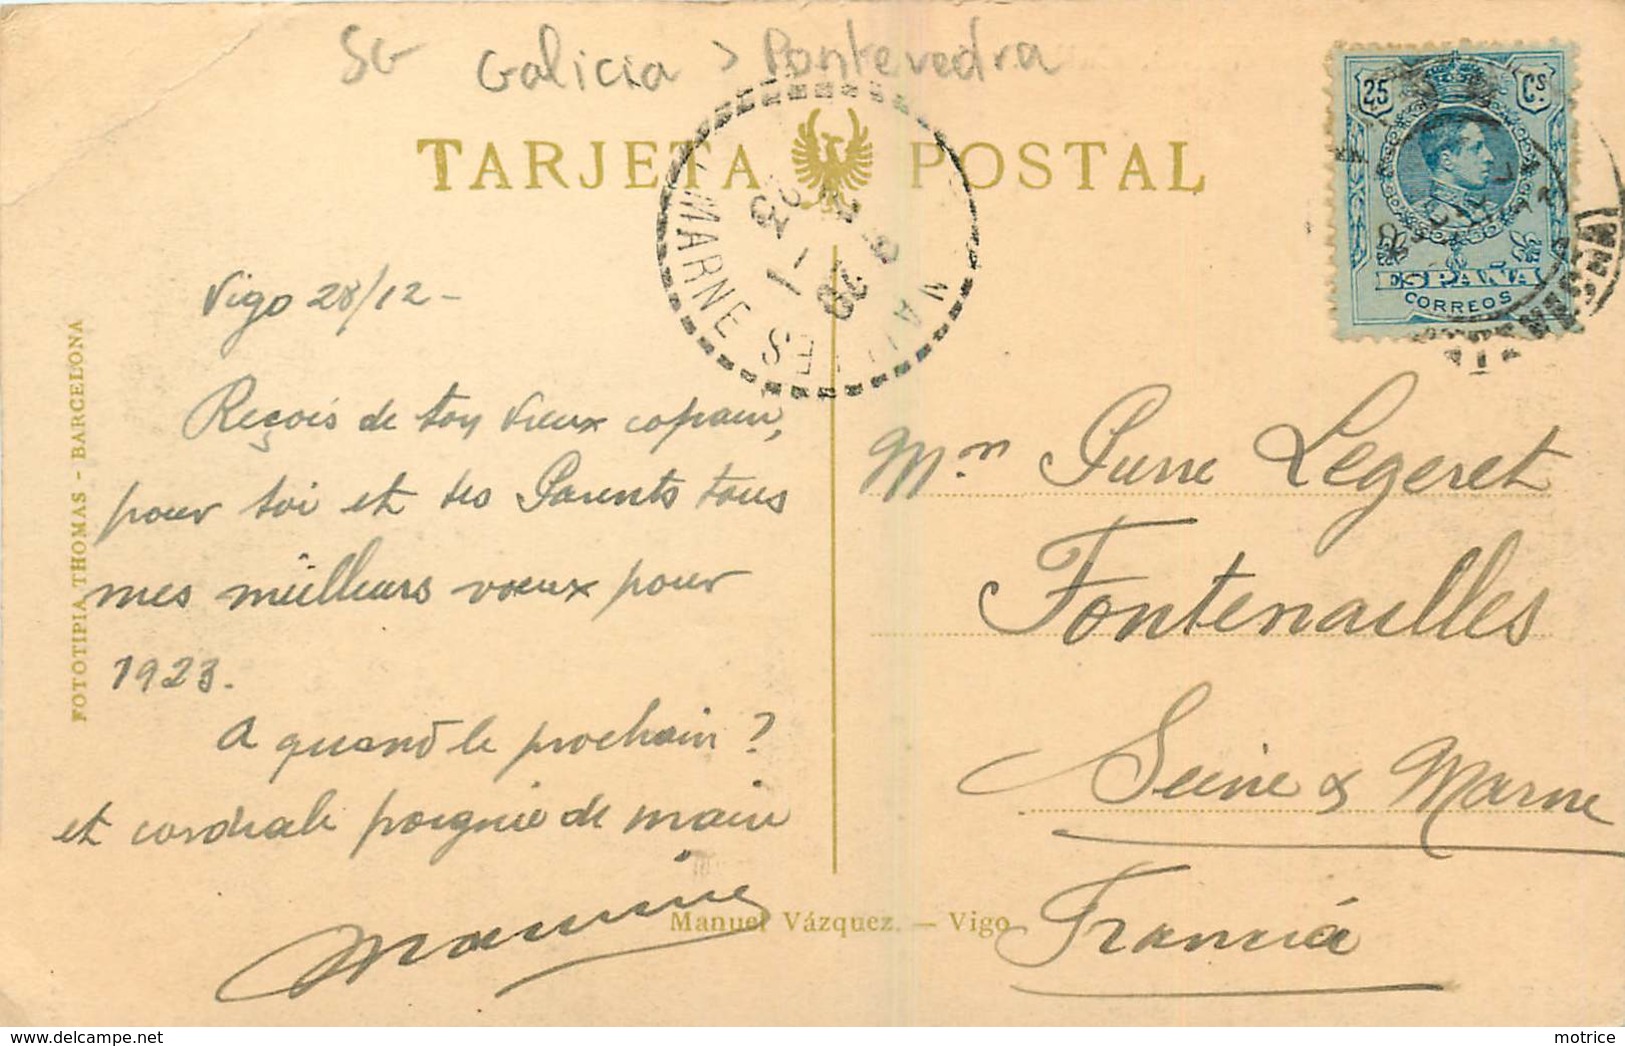 SG Galicia > Pontevedra
TARJETA POSTAL
25 Cs.
ESPAÑA
CORREOS
MARNE
Vigo 28/12 -
Reçois de ton vieux copain,
pour toi et tes Parents tous
mes meilleurs voeux pour
1923.
A quand le prochain ?
et cordiale poignée de main
Mn Pierre Legeret
Fontenailles
Seine & Marne
Francia
Manuel Vázquez. — Vigo
FOTOTIPIA THOMAS - BARCELONA
delcampe.net
motrice